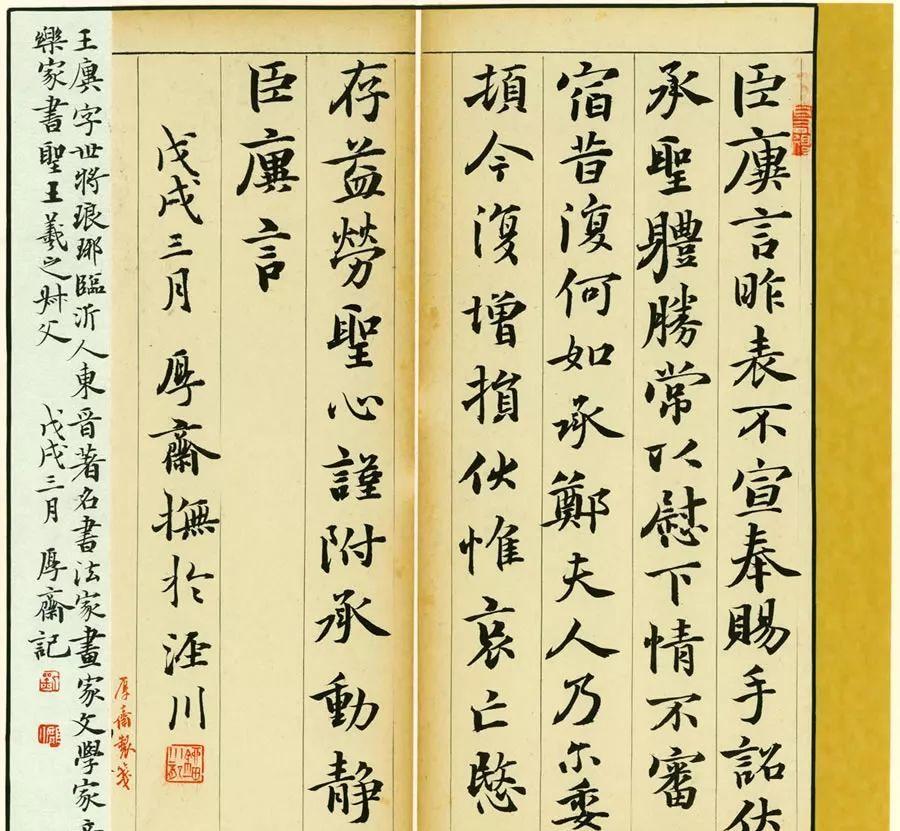 臣廙言昨表不宣奉賜手詔伏
承聖體勝常以慰下情不審
宿昔復何如承鄭夫人乃尒委
頓今復增損伏惟哀亡愍
存益勞聖心謹附承動静
臣廙言
戊戌三月 厚齋撫於涇川
厚齋製箋
王廙字世將琅琊臨沂人東晉著名書法家畫家文學家音
樂家書聖王羲之叔父 戊戌三月 厚齋記